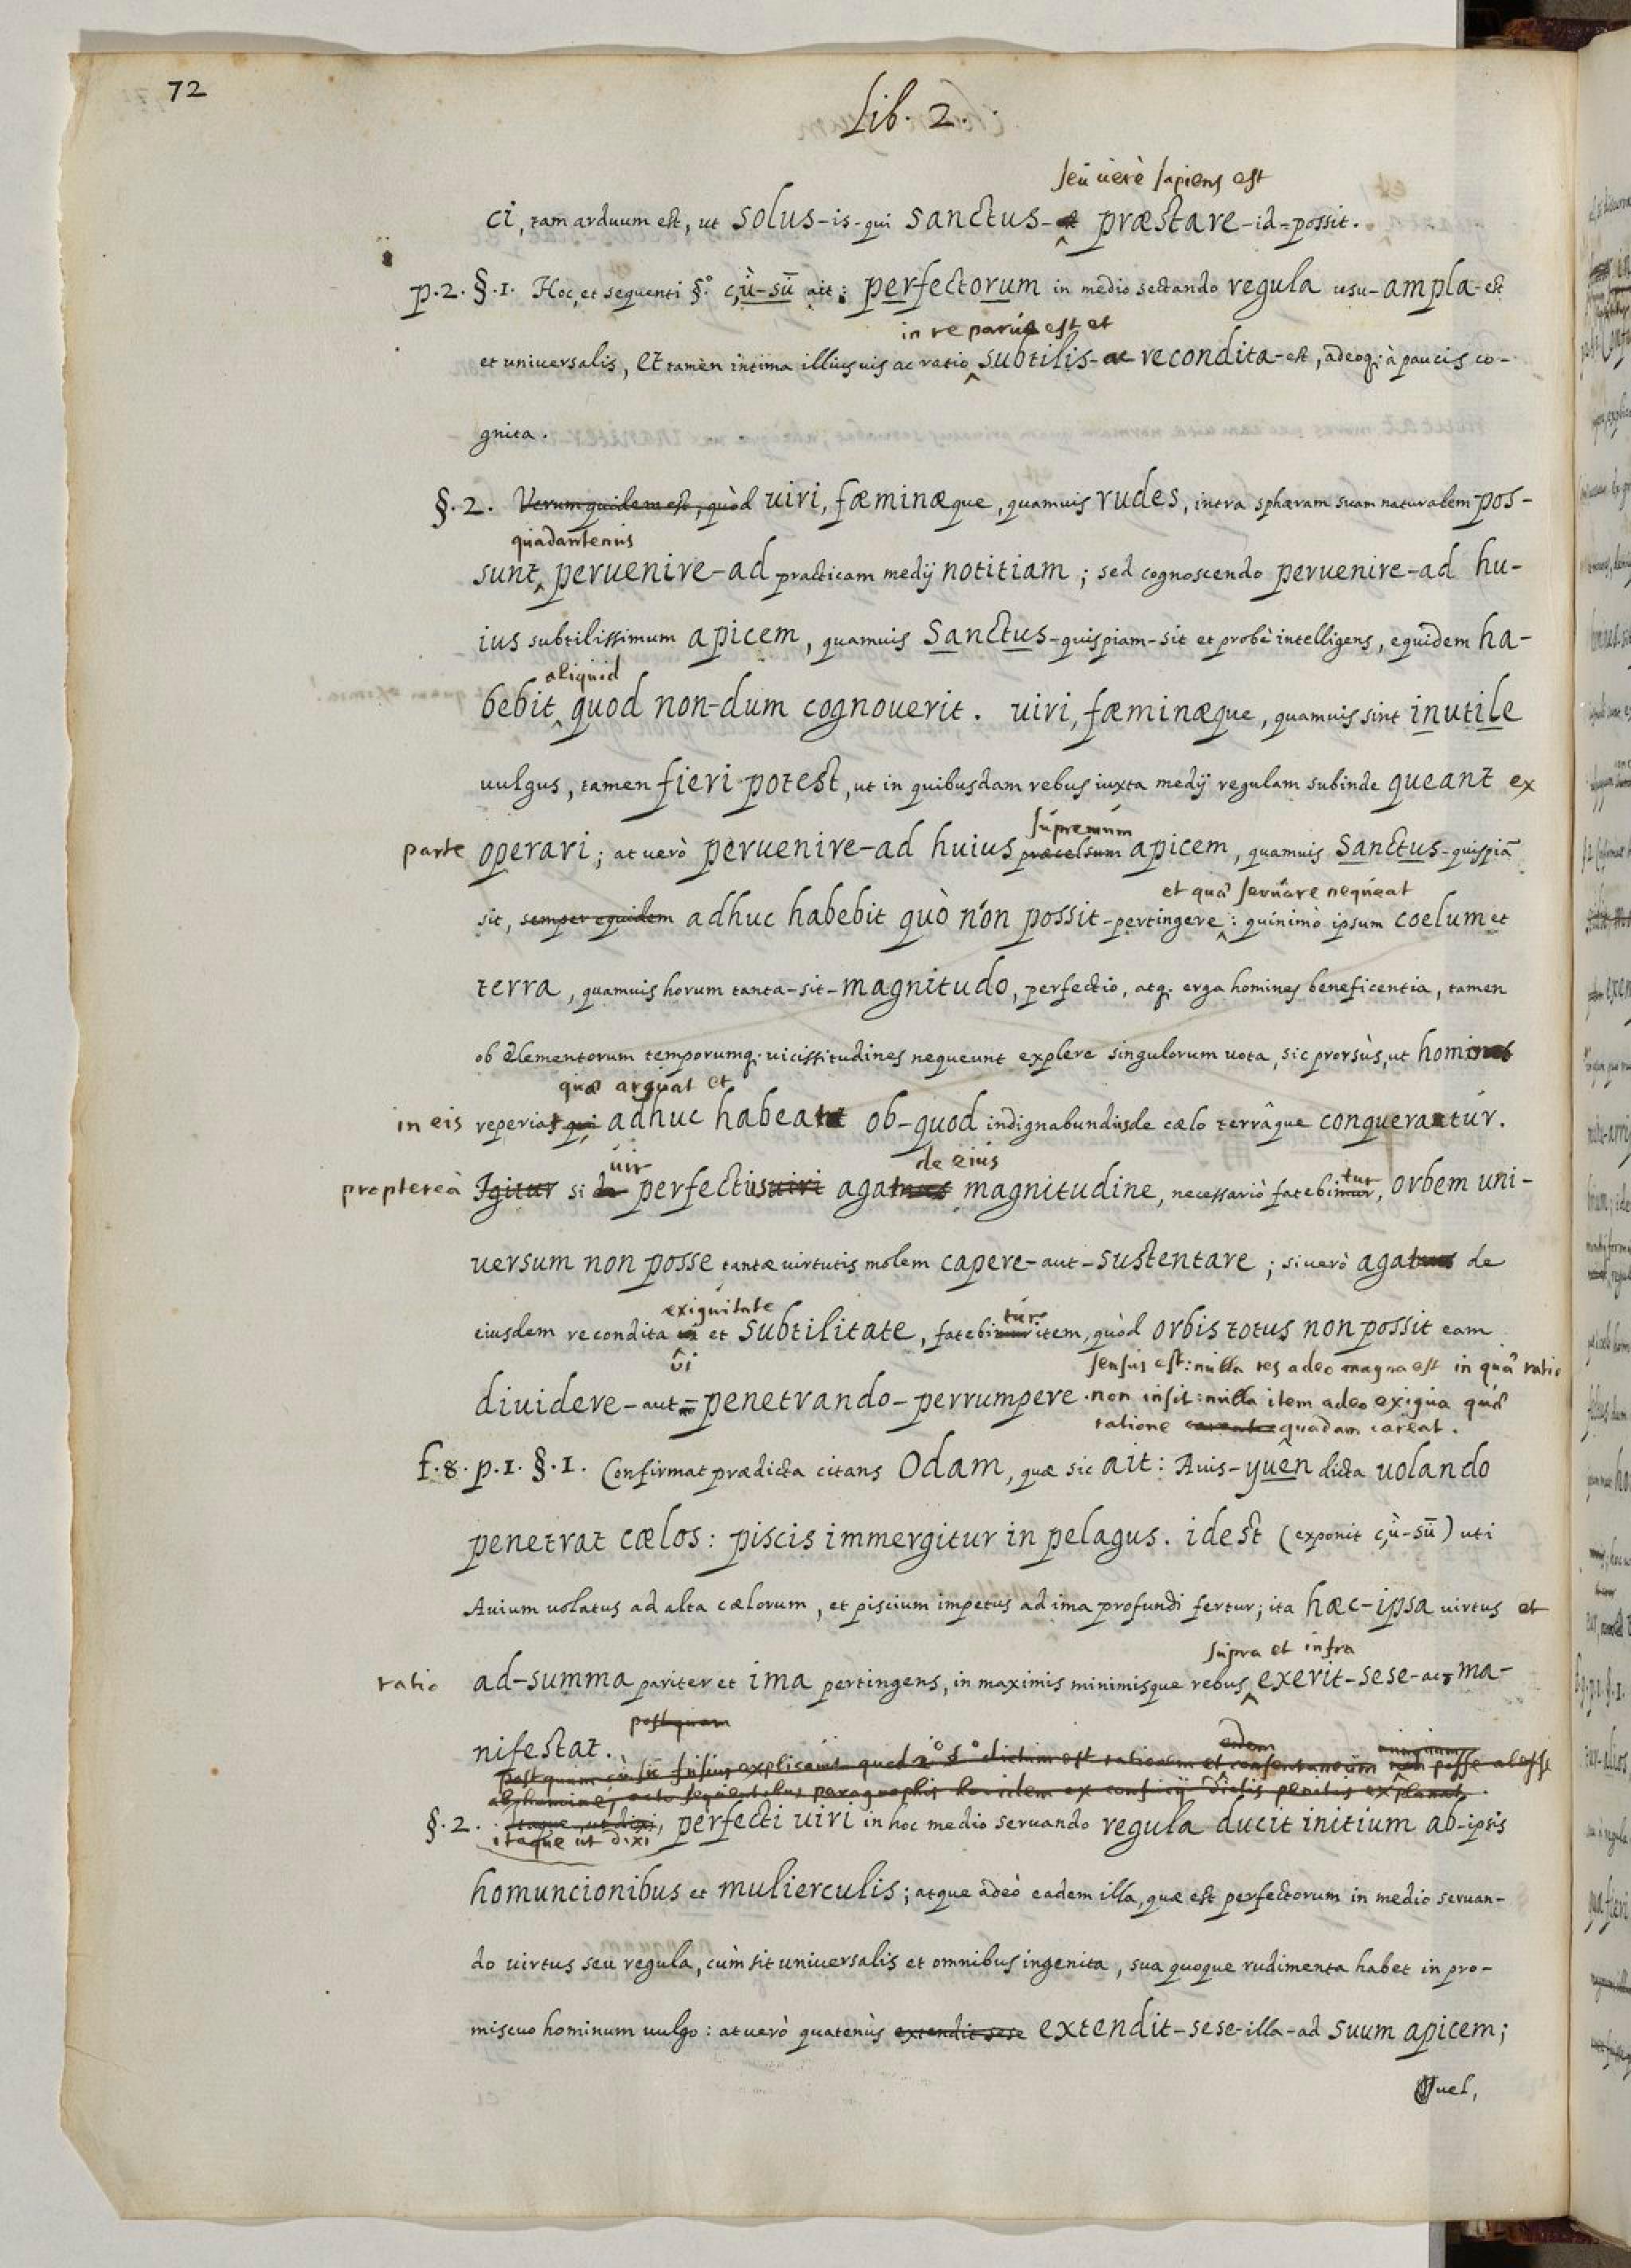 72
Lib. 2.
seu uerè sapiens est
ci, tam arduum est, ut solus-is-qui sanctus- præstare-id-possit.
p.2. §.1. Hoc, et sequenti §.º çù-sū ait: perfectorum in medio sectando regula usu-ampla-est
in re parua est et
et uniuersalis, et tamen intima illius uis ac ratio subtilis-ac recondita-est, adeoq; à paucis co-
gnita.
§.2. Verum quidem est, quòd uiri, fæminæque, quamuis rudes, intra sphæram suam naturalem pos-
quadantenus
sunt peruenire-ad practicam medij notitiam; sed cognoscendo peruenire-ad hu-
ius subtilissimum apicem, quamuis Sanctus-quispiam-sit et probè intelligens, equidem ha-
aliquid
bebit quod non-dum cognouerit. uiri, fæminæque, quamuis sint inutile
uulgus, tamen fieri potest, ut in quibusdam rebus iuxta medij regulam subinde queant ex
supremum
parte operari; at uerò peruenire-ad huius præcelsum apicem, quamuis Sanctus-quispiã
et quã seruare nequeat
sit, semper equidem adhuc habebit quò non possit-pertingere: quinimò ipsum coelum et
terra, quamuis horum tanta-sit-magnitudo, perfectio, atq; erga homines beneficentia, tamen
ob elementorum temporumq; uicissitudines nequeunt explere singulorum uota, sic prorsùs, ut homines
quæ arguat et
in eis reperiat qui adhuc habeat ob-quod indignabundus de cælo terrâque conqueratur.
uir de eius
proptereà Igitur si de perfectus uiri agat magnitudine, necessariò fatebitur, orbem uni-
uersum non posse tantæ uirtutis molem capere-aut-sustentare; si uerò agat de
exiguitate tur
eiusdem recondita ui et subtilitate, fatebimur item, quòd orbis totus non possit eam
ui sensus est: nulla res adeo magna est in quã ratio
diuidere-aut-penetrando-perrumpere. non insit: nulla item adeo exigua quæ
ratione quadam careat.
f.8. p.1. §.1. Confirmat prædicta citans Odam, quæ sic ait: Auis-yuên dicta uolando
penetrat cælos: piscis immergitur in pelagus. idest (exponit çù-sū) uti
Auium uolatus ad alta cælorum, et piscium impetus ad ima profundi fertur; ita hæc-ipsa uirtus et
supra et infra
ratio ad-summa pariter et ima pertingens, in maximis minimisque rebus exerit-sese-ac, ma-
postquam
nifestat.
§.2. Itaque, ut dixi, perfecti uiri in hoc medio seruando regula ducit initium ab-ipsis
itaque ut dixi
homuncionibus et mulierculis; atque adeò eadem illa, quæ est perfectorum in medio seruan-
do uirtus seu regula, cùm sit uniuersalis et omnibus ingenita, sua quoque rudimenta habet in pro-
miscuo hominum uulgo: at uerò quatenùs extendit sese extendit-sese-illa-ad suum apicem;
Quel,